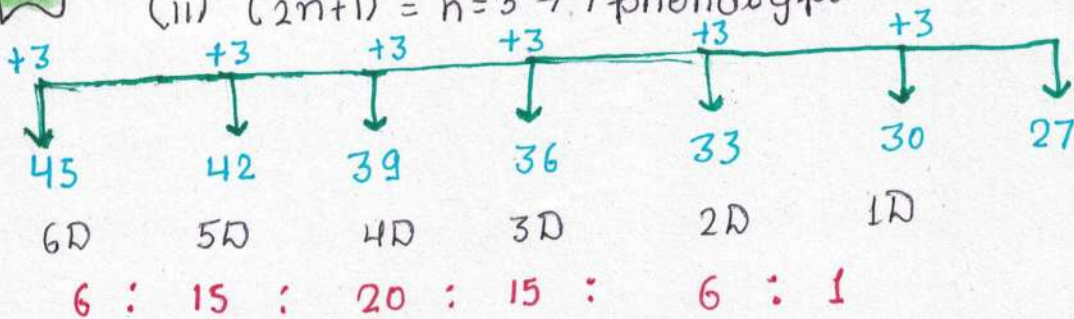 (ii) (2n+1) = n=3 → 7 phenotype
+3 +3 +3 +3 +3 +3
45 42 39 36 33 30 27
6D 5D 4D 3D 2D 1D
6 : 15 : 20 : 15 : 6 : 1